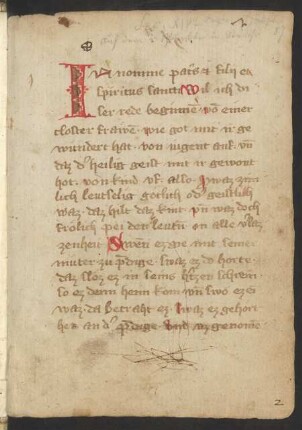 In nomine pat's et filij et
spiritus sancti Wil ich di
ser rede beginnen võ einer
closter frawen wie got mit ir ge
wundert hat von iugent auf vñ
daz d' heilig geist mit ir gewont
hot von kind uf. allez swaz zim
lich leutselig gotlich od' geistlich
waz daz hilt daz kint vñ waz doch
frolich pei den leutn an alle
zenheit Swen ez gie mit seiner
muter zu p'dige swaz ez do horte
daz sloz ez in seins h'tzen schrein
so ez denn heim kom vñ swo ez ei
waz daz betraht ez swaz ez gehort
het an d' p'dige Und ez genome
2